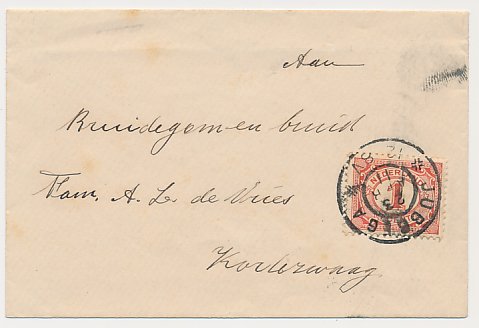 Aan
Bruidegom en bruid
Fam. A. L. de Vries
Korterwaag
NEDERLAND
1
JUBBEGA